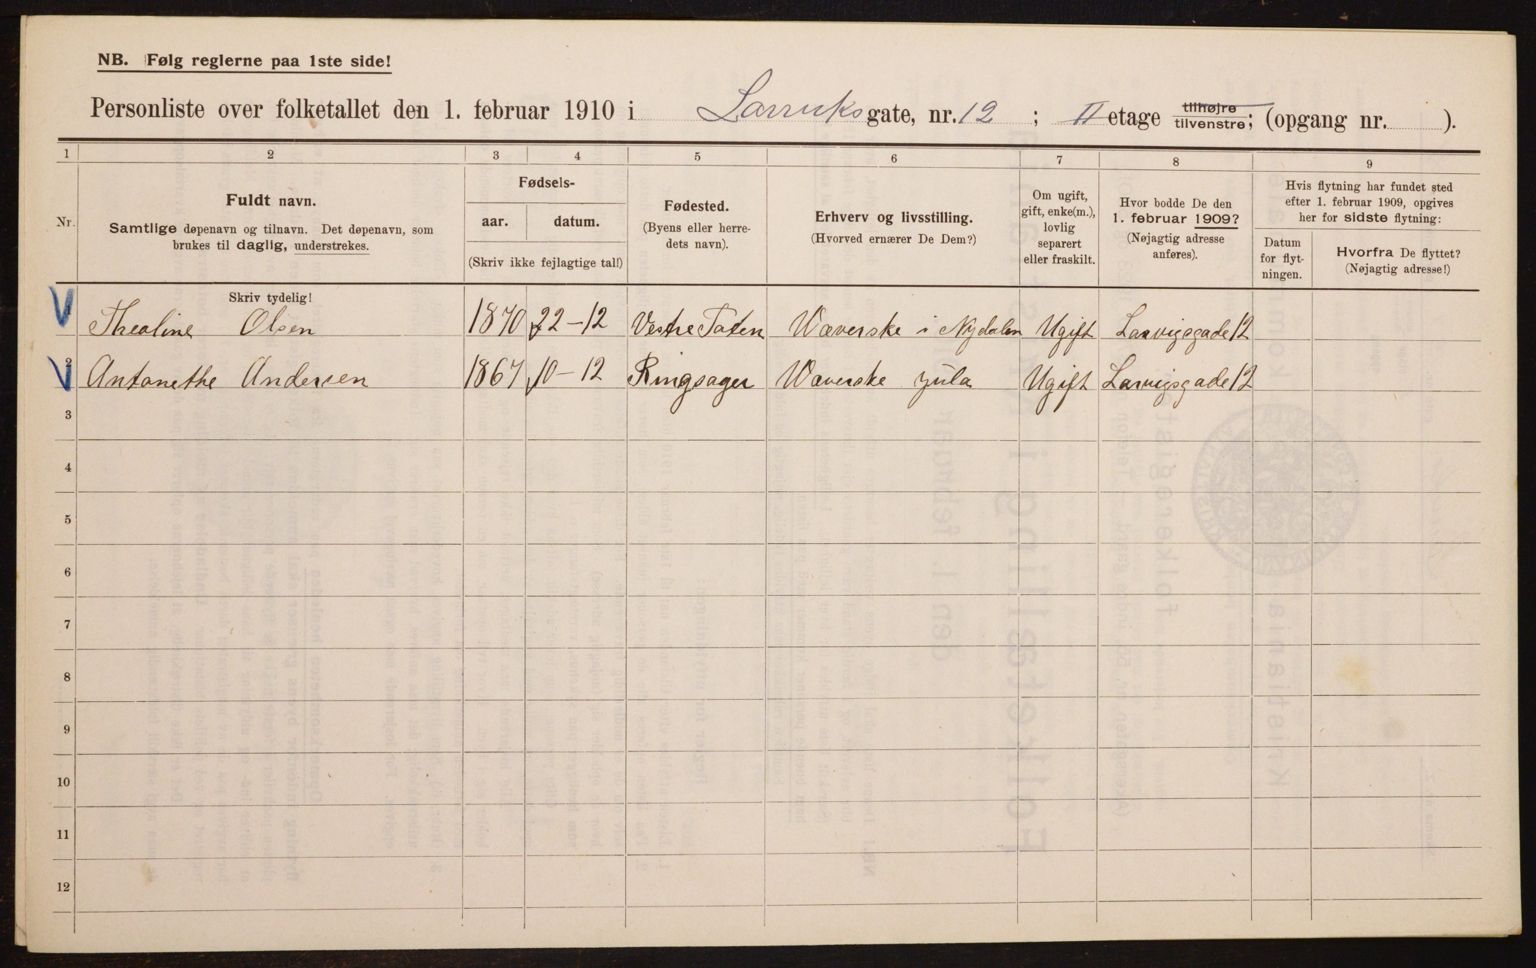 NB. Følg reglerne paa 1ste side!
Personliste over folketallet den 1. februar 1910 i Larviksgate, nr. 12 ; II etage tilhøjre tilvenstre; (opgang nr. ).
1 2 3 4 5 6 7 8 9
Nr.
Fuldt navn.
Samtlige døpenavn og tilnavn. Det døpenavn, som
brukes til daglig, understrekes.
Fødsels-
aar. datum.
(Skriv ikke fejlagtige tal!)
Fødested.
(Byens eller herre-
dets navn).
Erhverv og livsstilling.
(Hvorved ernærer De Dem?)
Om ugift,
gift, enke(m.),
lovlig
separert
eller fraskilt.
Hvor bodde De den
1. februar 1909?
(Nøjagtig adresse
anføres).
Hvis flytning har fundet sted
efter 1. februar 1909, opgives
her for sidste flytning:
Datum
for flyt-
ningen.
Hvorfra De flyttet?
(Nøjagtig adresse!)
Skriv tydelig!
Thealine Olsen 1870 22-12 Vestre Toten Wæverske i Nydalen Ugift Larvigsgade 12
2 Antonethe Andersen 1867 10-12 Ringsager Wæverske Jula Ugift Larvigsgade 12
3
4
5
6
7
8
9
10
11
12